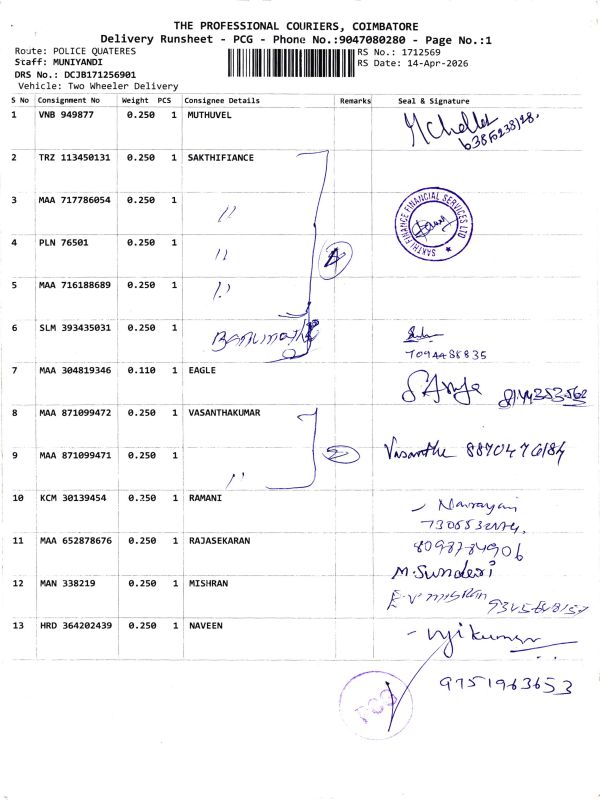 THE PROFESSIONAL COURIERS, COIMBATORE
Delivery Runsheet - PCG - Phone No.:9047080280 - Page No.:1
Route: POLICE QUATERES RS No.: 1712569
Staff: MUNIYANDI RS Date: 14-Apr-2026
DRS No.: DCJB171256901
Vehicle: Two Wheeler Delivery
S No Consignment No Weight PCS Consignee Details Remarks Seal & Signature
1 VNB 949877 0.250 1 MUTHUVEL
2 TRZ 113450131 0.250 1 SAKTHIFIANCE
3 MAA 717786054 0.250 1 "
SAKTHI FINANCE FINANCIAL SERVICES LTD
4 PLN 76501 0.250 1 " 4
5 MAA 716188689 0.250 1 "
6 SLM 393435031 0.250 1
7094488835
7 MAA 304819346 0.110 1 EAGLE
8 MAA 871099472 0.250 1 VASANTHAKUMAR
9 MAA 871099471 0.250 1 " 2 Vasantha
10 KCM 30139454 0.250 1 RAMANI
11 MAA 652878676 0.250 1 RAJASEKARAN
M. Sunderi
12 MAN 338219 0.250 1 MISHRAN
13 HRD 364202439 0.250 1 NAVEEN
9751963653